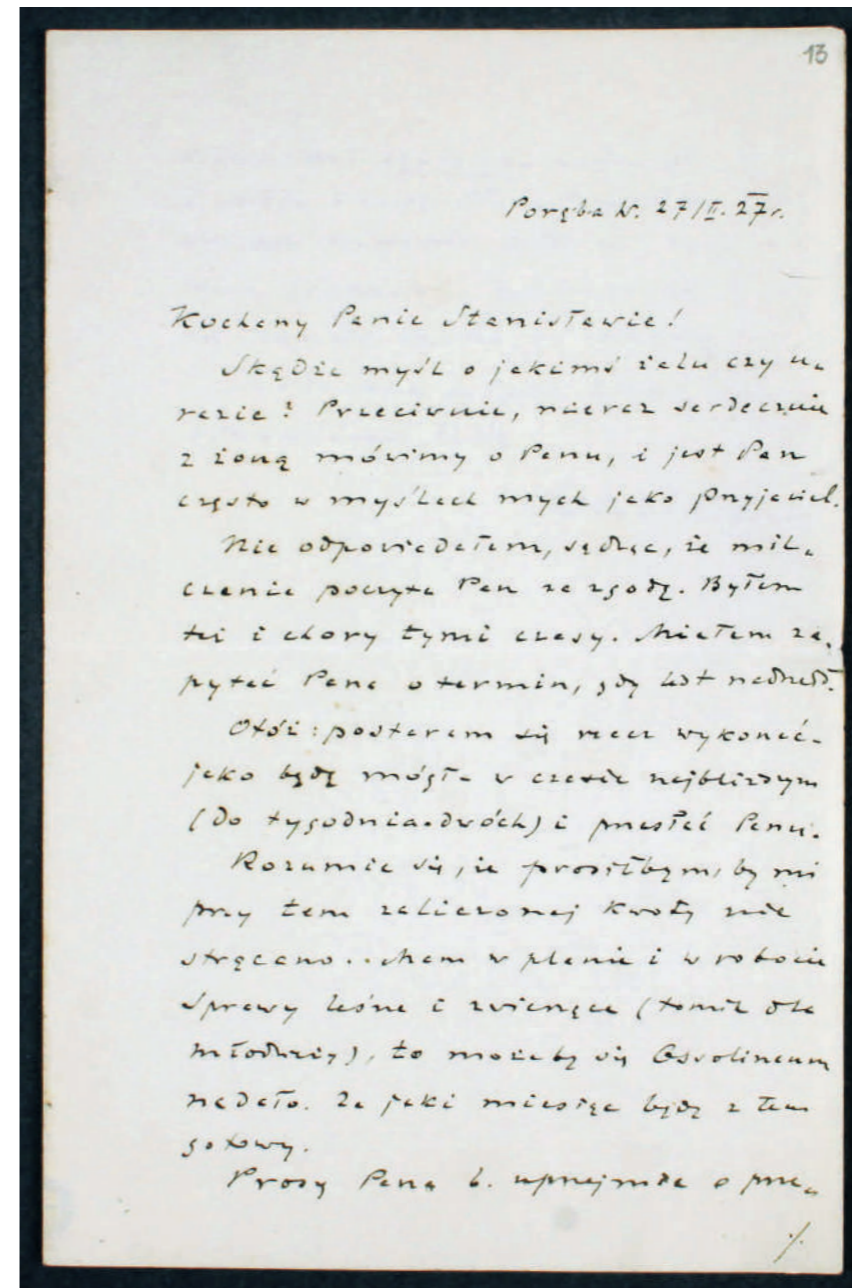 13
Poręba W. 27/II. 27r.
Kochany Panie Stanisławie!
Skądże myśl o jakimś żalu czy u„
razie? Przeciwnie, nieraz serdecznie
z żoną mówimy o Panu, i jest Pan
często w myślach mych jako przyjaciel.
Nie odpowiedałem, sądząc, że mil„
czenie poczyta Pan za zgodę. Byłem
też i chory tymi czasy. Miałem za„
pytać Pana o termin, gdy list nadszedł.
Otóż: postaram się rzecz wykonać –
jako będę mógł – w czasie najbliższym
(do tygodnia–dwóch) i przesłać Panu.
Rozumie się, że prosiłbym, by mi
przy tem zaliczonej kwoty nie
strącano.. Mam w planie i w robocie
Sprawy leśne i zwierzęce (tomik dla
młodzieży), to możeby się Ossolineum
nadało. Za jaki miesiąc będę z tem
gotowy.
Proszę Pana b. uprzejmie o prze„
./.